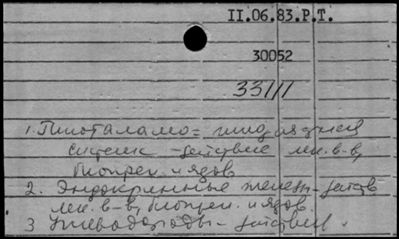 II.06.83.P.T.
30052
33111
1. Гипоталамо=гипофизарная
система - действие лек. в-в,
биопреп. и ядов
2. Эндокринные железы - действ
лек. в-в, биопреп. и ядов
3 Углеводороды - действие